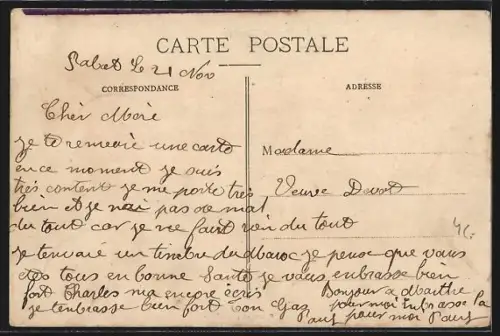 CARTE POSTALE
Rabat le 21 Nov
CORRESPONDANCE
ADRESSE
Cher Mère
je te remercie une carte
en ce moment je suis
très content je me porte très
bien et je n'ai pas de mal
du tout car je ne faut rien du tout
Madame
Veuve Devot
je tenvoie un timbre du Maroc je pense que vous
etes tous en bonne Santé je vous enbrasse bien
fort Charles ma encore écris
je tenbrasse bien fort ton Gas
Bonjour a Marthe
pour moi Enbrasse la
pour moi